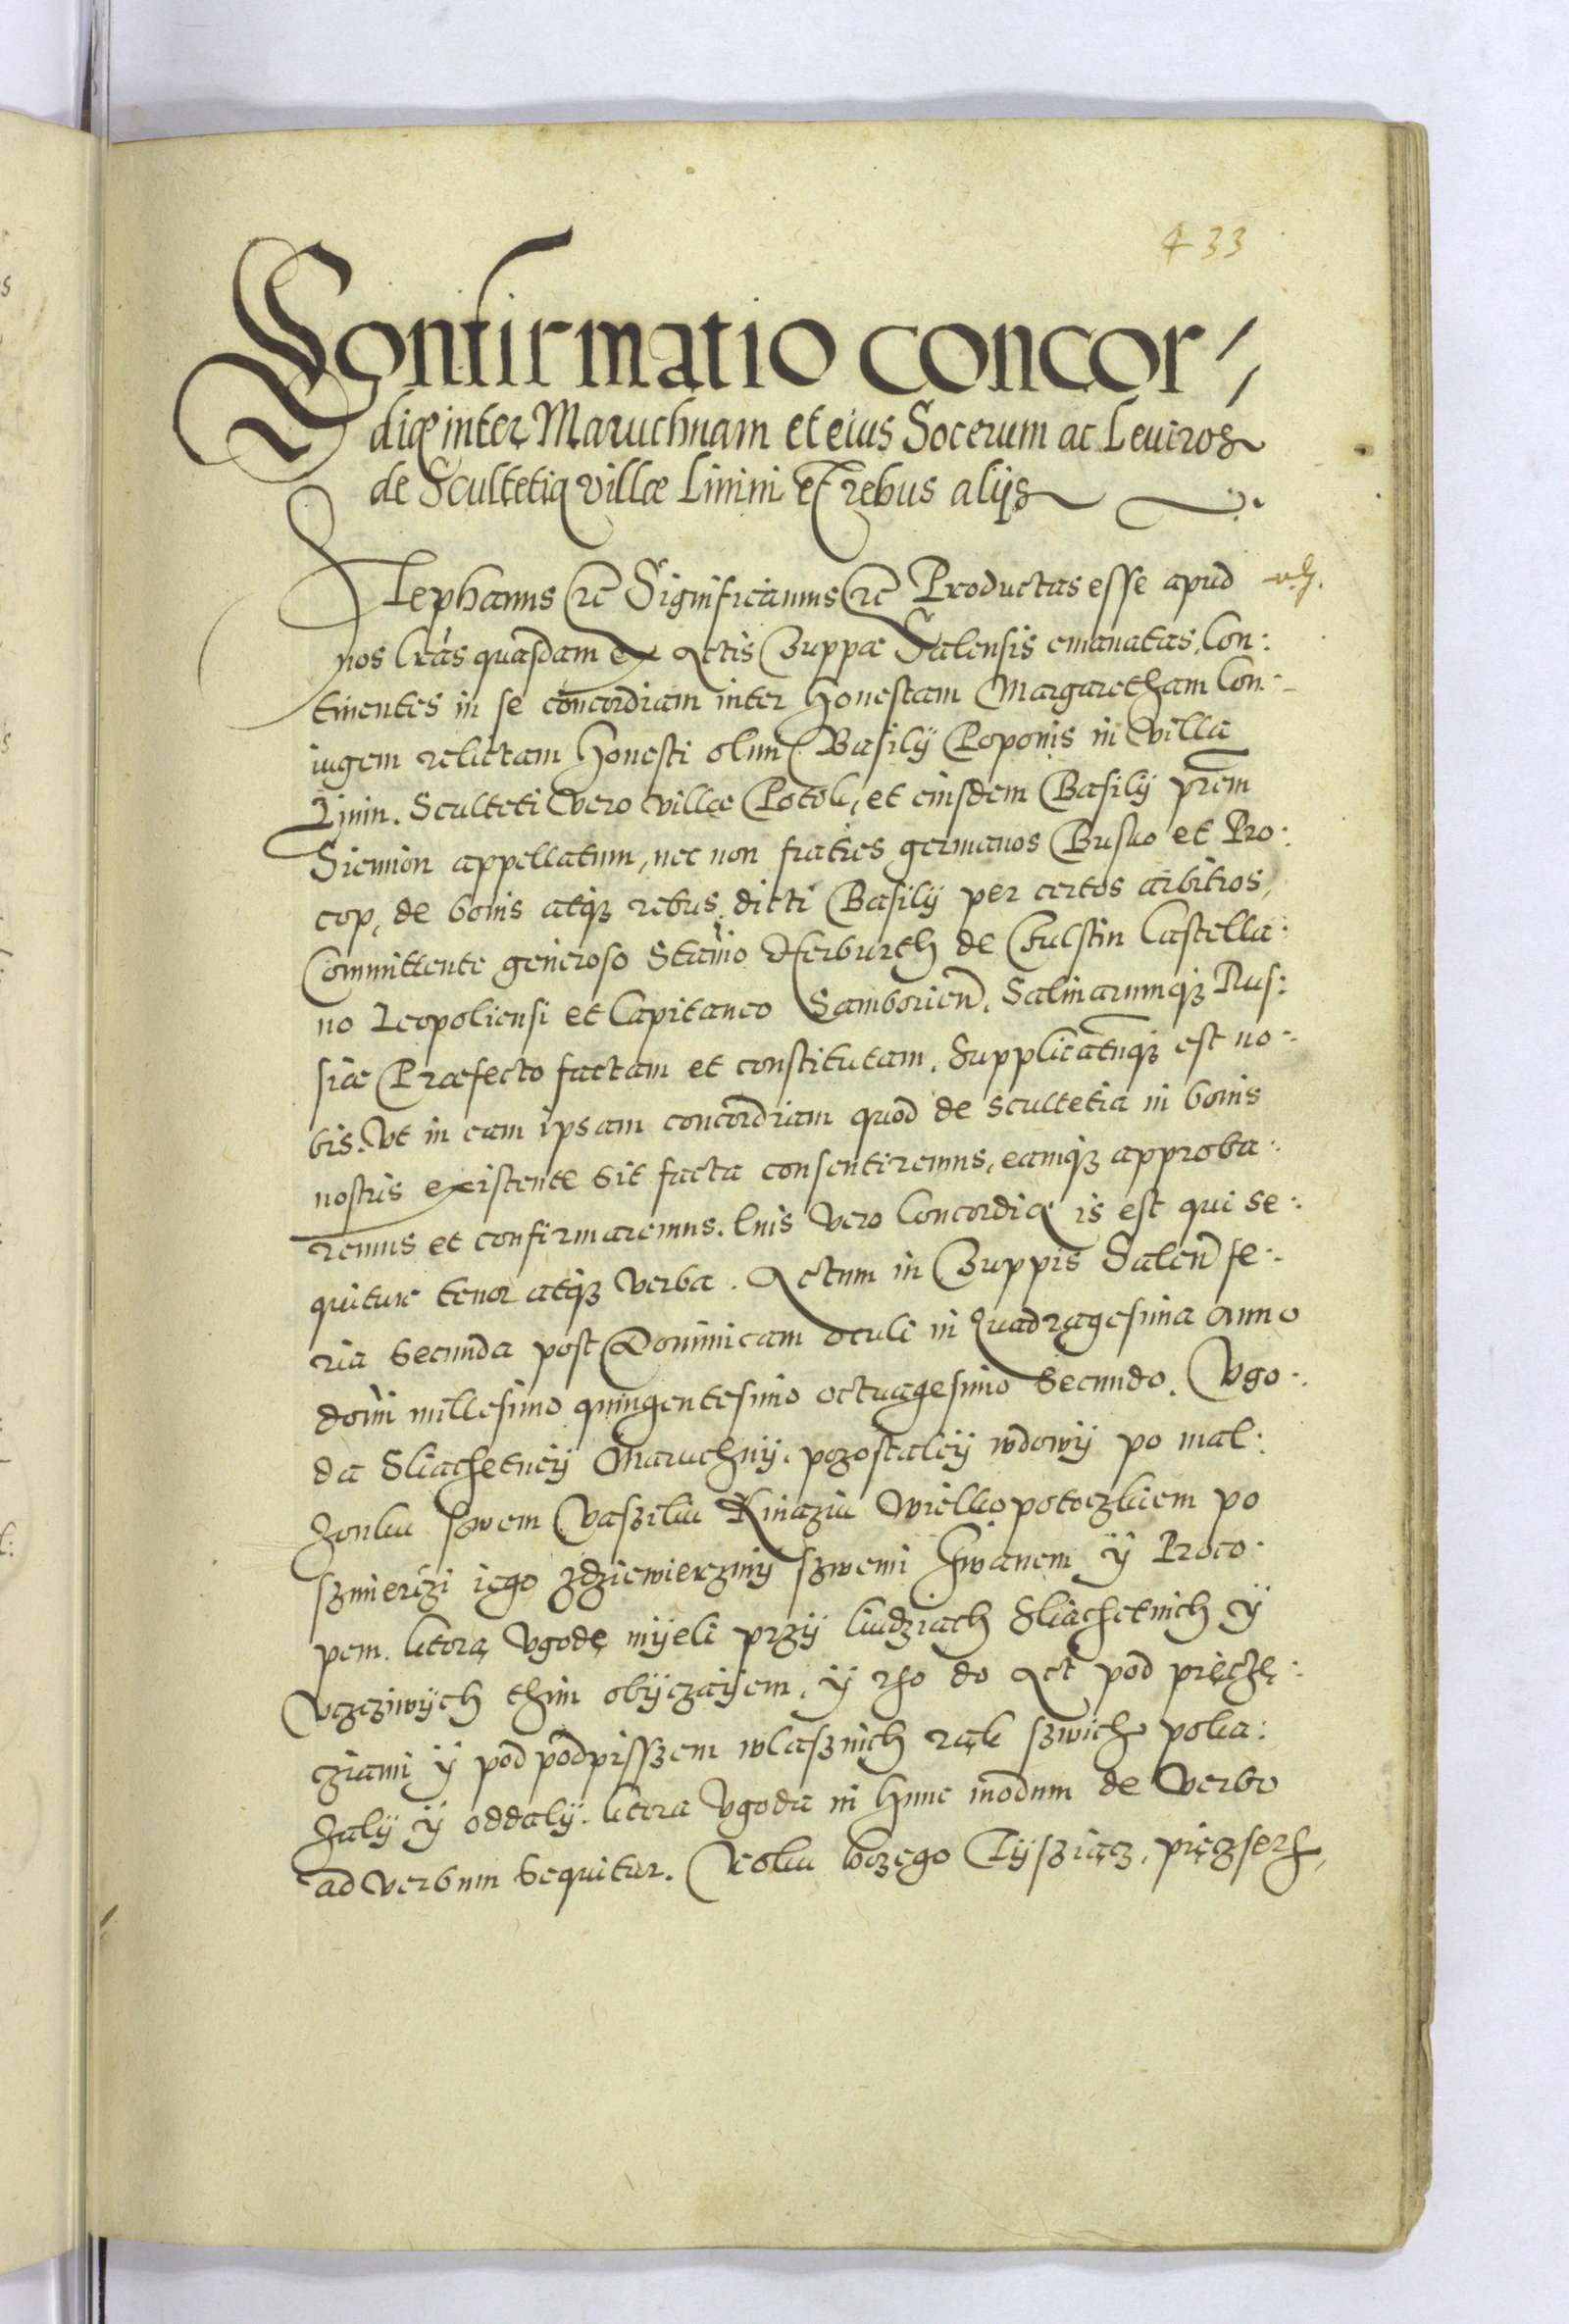 433
Confirmatio concor⸗
diæ inter Maruchnam et eius Socerum ac Leuiros
de Scultetia villæ Linini et rebus alijs
Stephanus etc Significamus etc Productas esse apud
nos l̃ras quasdam ex Actis Zuppæ Salensis emanatas, Con:
tinentes in se concordiam inter Honestam Margaretham Con:
iugem relictam Honesti olim Basilÿ Poponis in villa
Linin. Sculteti vero villæ Potok, et eiusdem Basilÿ pr̃em
Siemion appellatum, nec non fratres germanos Busko et Pro:
cop, de bonis atq́ꝫ rebus dicti Basilÿ per certos arbitros,
Committente generoso Stanĩo Herburth de Fulstin Castella:
no Leopoliensi et Capitaneo Samborien̄. Salinarumq́ꝫ Rus:
siæ Præfecto factam et constitutam. Supplicatuq́ꝫ est no:
bis. Vt in eam ipsam concordiam quod de scultetia in bonis
nostris existente sit facta consentiremus, eamq́ꝫ approba:
remus et confirmaremus. Cuis vero Concordiæ is est qui se:
quitur tenor atq́ꝫ verba. Actum in Zuppis Salen̄ fe:
ria secunda post Dominicam oculi in Quadragesima anno
dom̃i millesimo quingentesimo octuagesimo secundo. Vgo:
da Sliachetneÿ Maruchnÿ. pozostaleÿ wdowÿ po mal:
zonku szwem Vaszilu Kniaziu Wielkopotoczkiem po
szmierczi iego zdziewierzmÿ szwemi Hwanem ÿ Proco:
pem. ktorą Vgodę mÿeli przÿ liudziach Sliachetnich ÿ
Vczcziwÿch thim obÿczaÿem, ÿ tho do Act pod pieczę:
cziami ÿ pod podpisszem wlasznich rąk szwich poka:
zalÿ ÿ oddalÿ. ktora Vgoda in hunc modum de verbo
ad verbum sequitur. Roku bożego Tÿsziącz, pięczseth,